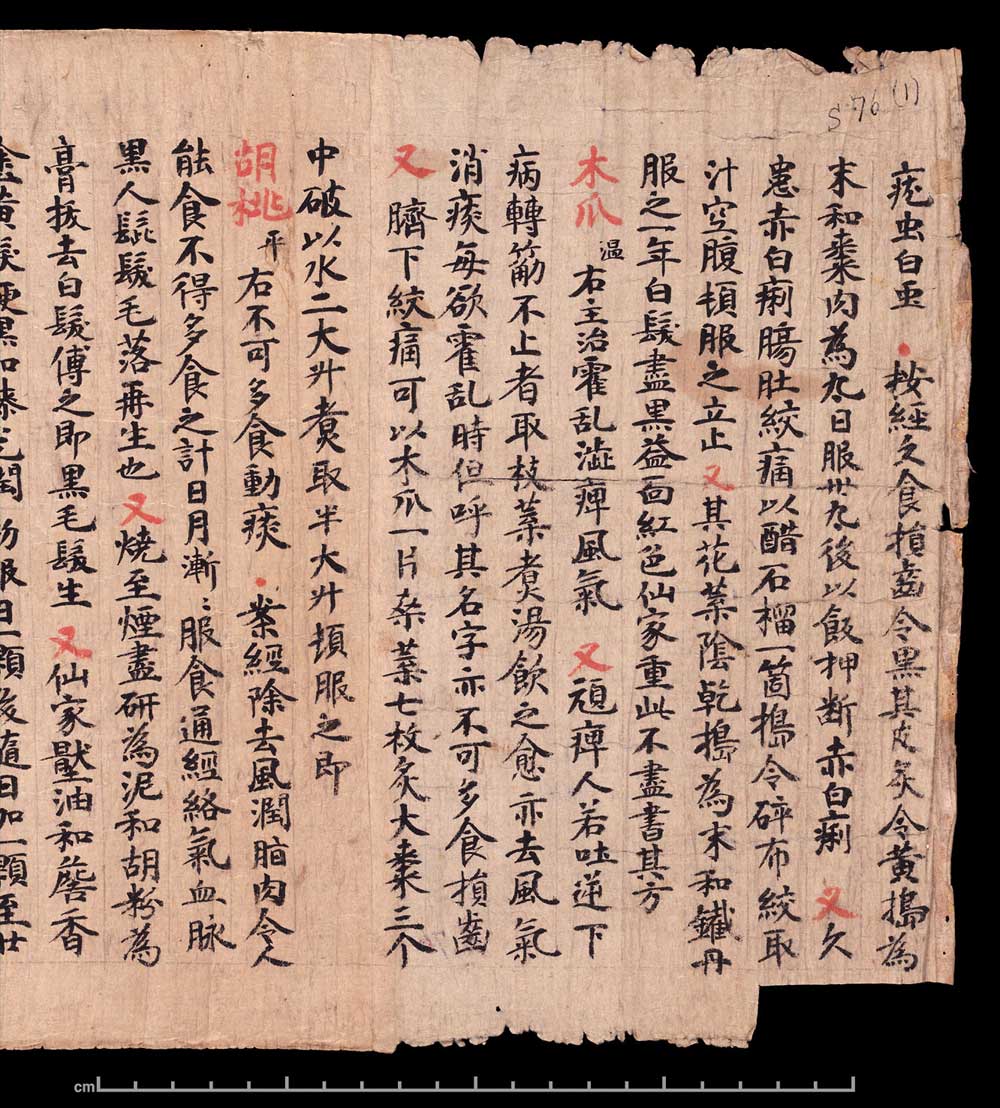 S 76 (1)
疣虫白虫 ・按經久食損齒令黑其皮炙令黃搗為
末和棗肉為丸日服卅丸後以飯押断赤白痢 又久
患赤白痢腸肚絞痛以醋石榴一箇搗令碎布絞取
汁空腹頓服之立止 又其花葉陰乾搗為末和鐵丹
服之一年白髮盡黑益面紅色仙家重此不盡書其方
木瓜 温 右主治霍乱澁痺風氣 又頑痺人若吐逆下
病轉筋不止者取枝葉煮湯飲之愈亦去風氣
消痰每欲霍乱時但呼其名字亦不可多食損齒
又 臍下絞痛可以木瓜一片桒葉七枚炙大棗三个
中破以水二大升煮取半大升頓服之即
胡桃 平 右不可多食動痰 ・案經除去風潤脂肉令人
能食不得多食之計日月漸〻服食通經絡氣血脉
黑人髭髮毛落再生也 又燒至煙盡研為泥和胡粉為
膏拔去白髮傅之即黑毛髮生 又仙家壓油和詹香
塗黃髮便黑如漆光潤 初服日一顆後隨日加一顆至廿